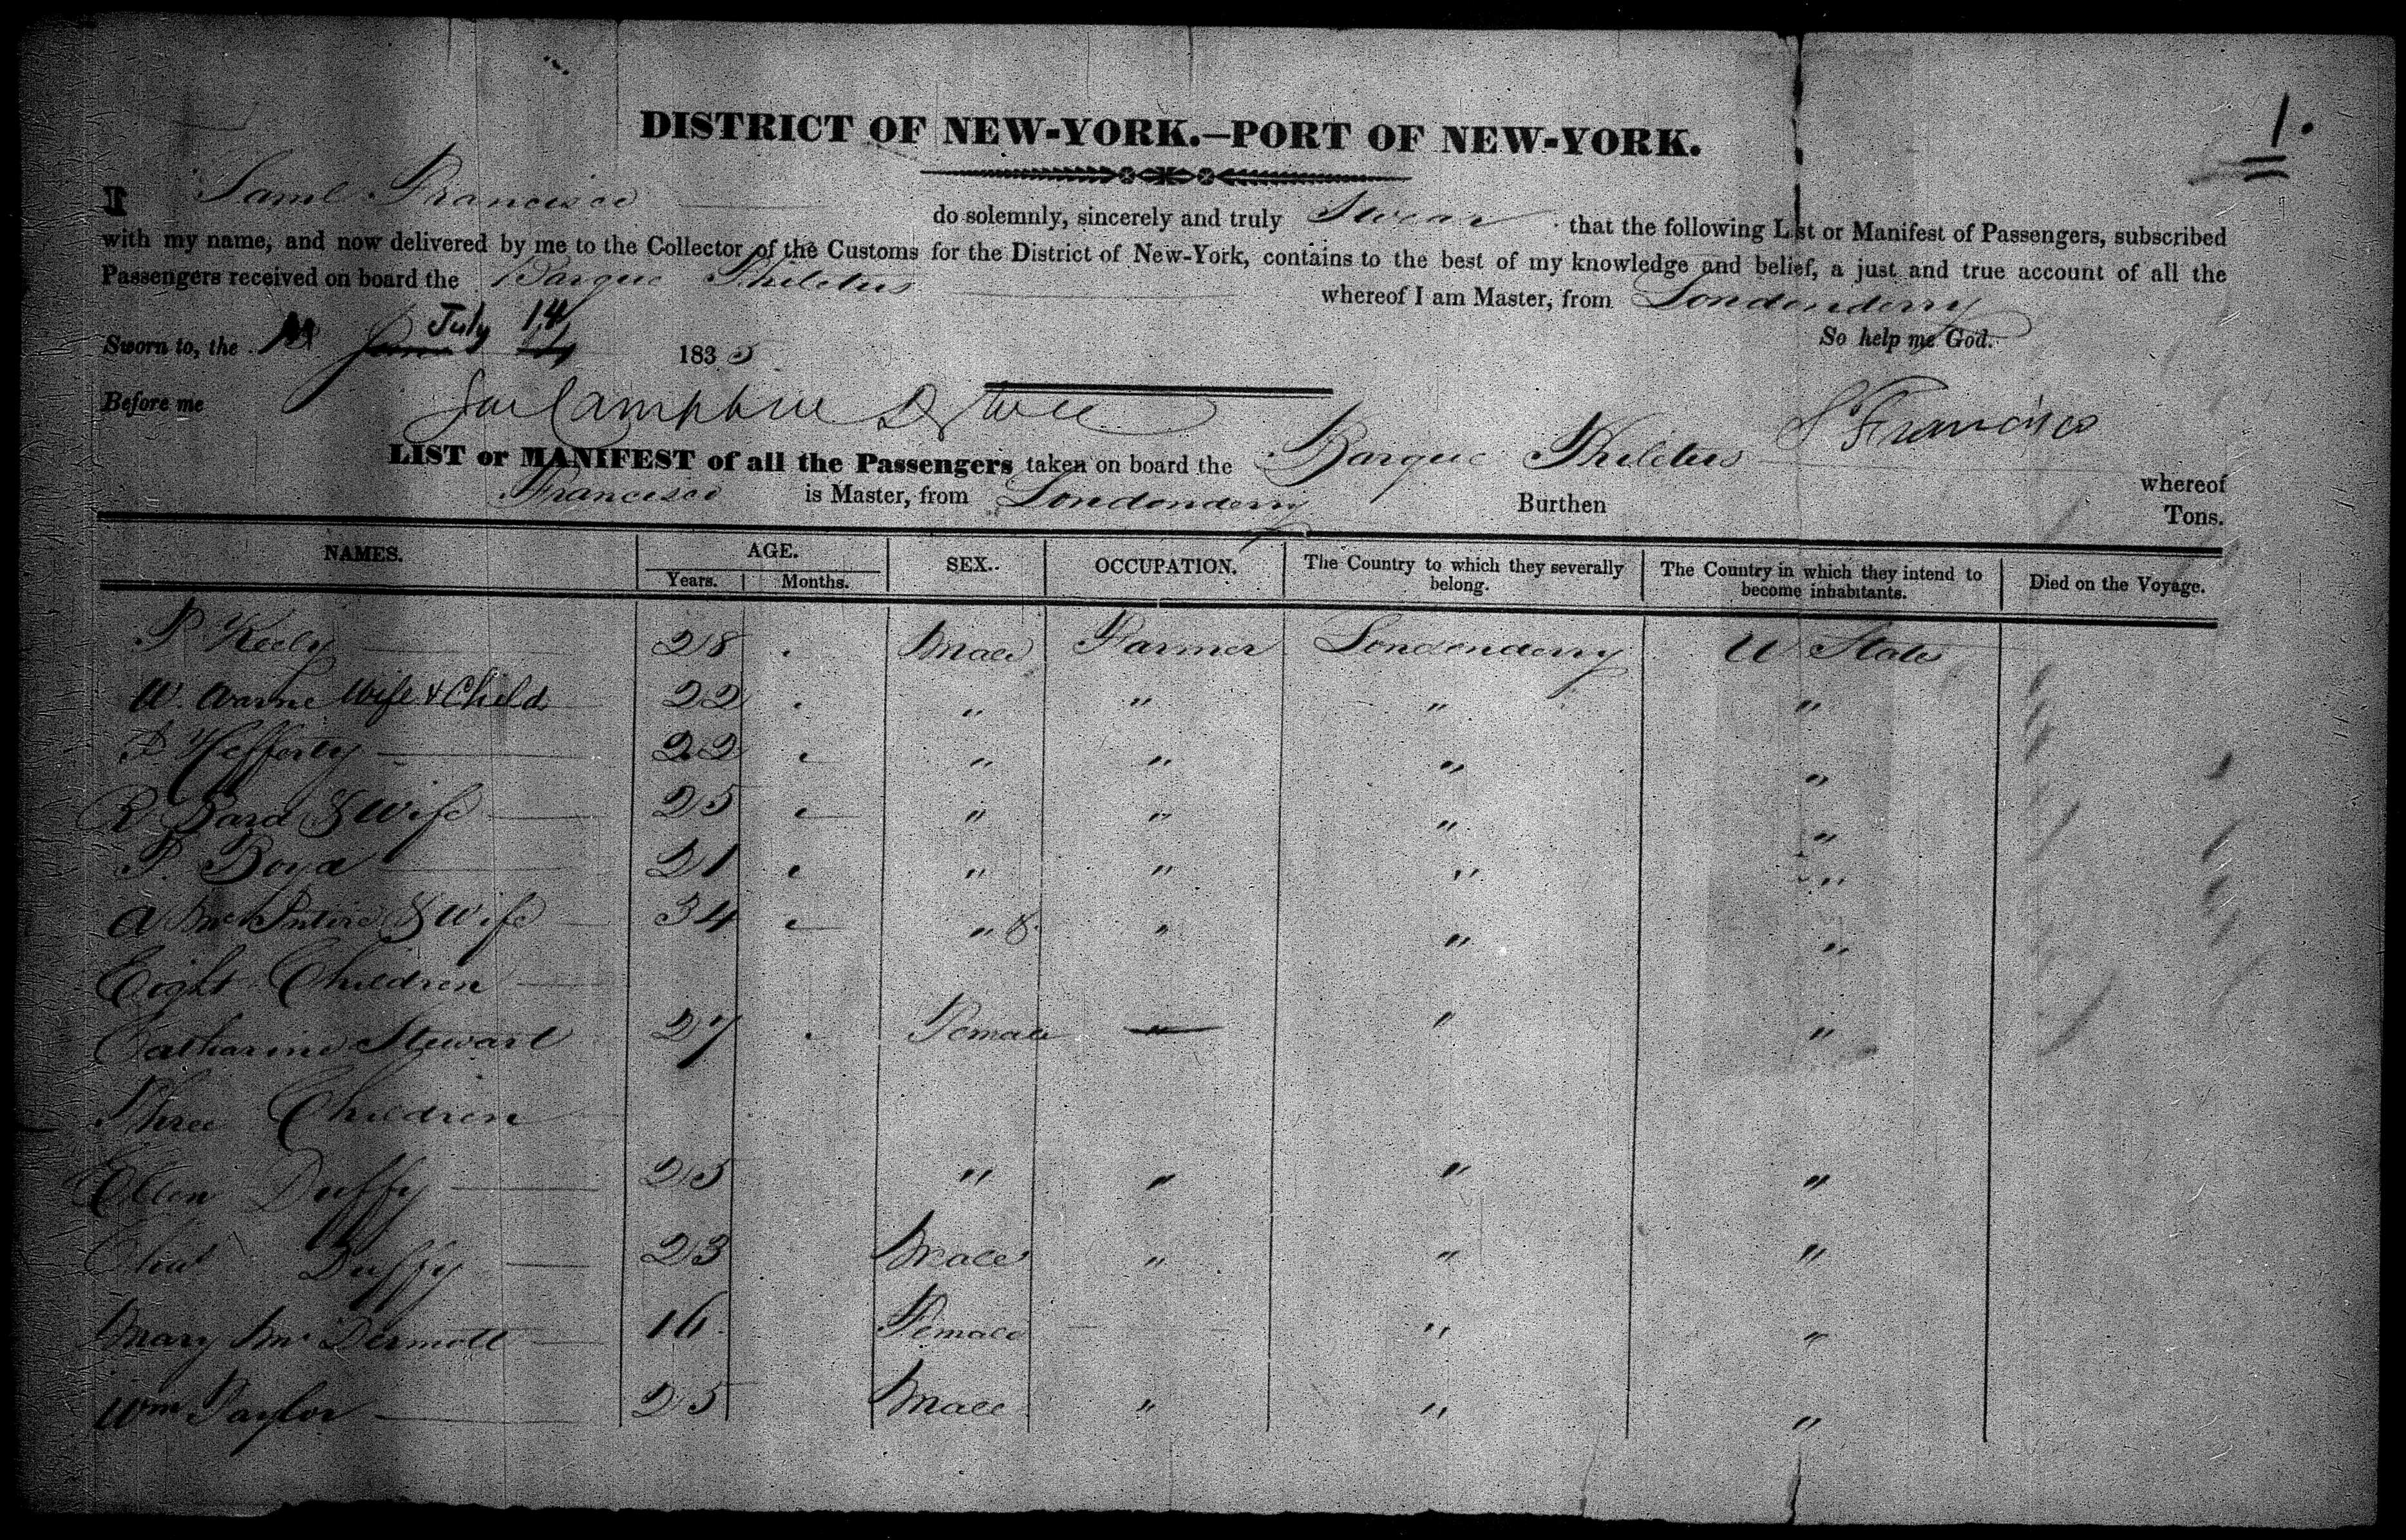 1.
DISTRICT OF NEW-YORK.—PORT OF NEW-YORK.
I Saml Francisco do solemnly, sincerely and truly Swear that the following List or Manifest of Passengers, subscribed
with my name, and now delivered by me to the Collector of the Customs for the District of New-York, contains to the best of my knowledge and belief, a just and true account of all the
Passengers received on board the Barque Philetus whereof I am Master, from Londonderry
So help me God.
Sworn to, the July 14 1835
Before me
S. Francisco
LIST or MANIFEST of all the Passengers taken on board the Barque Philetus whereof
Francisco is Master, from Londonderry Burthen Tons.
NAMES. AGE. SEX. OCCUPATION. The Country to which they severally belong. The Country in which they intend to become inhabitants. Died on the Voyage.
Years. Months.
P Keely 28 Male Farmer Londonderry U States
W. Warne Wife & Child 22 " " " "
Hefferty 22 " " " "
R Bard & Wife 25 " " " "
P. Boyd 21 " " " "
A McIntire & Wife 34 " 8 " " "
Eight Children
Catharine Stewart 27 Female " "
Three Children
Ellen Duffy 25 " " " "
Duffy 23 Male " " "
Mary McDermott 16 Female " "
Wm Taylor 25 Male " " "